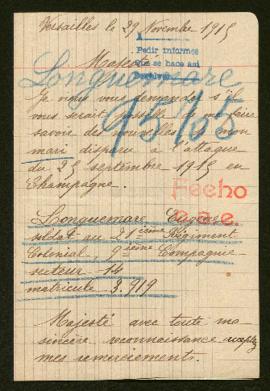 Versailles le 29 Novembre 1915
Pedir informes
que se hace asi
Majesté
Longuemare
15167
Je vous demande s'il
vous serait possible de faire
savoir des nouvelles de mon
mari disparu à l'attaque
du 25 septembre 1915 en
Champagne.
Fecho
Longuemare
soldat au 21 ième Régiment
Colonial, 9 ième Compagnie
secteur 14
matricule 3.919
Majesté avec toute ma
sincère reconnaissance
mes remerciements.